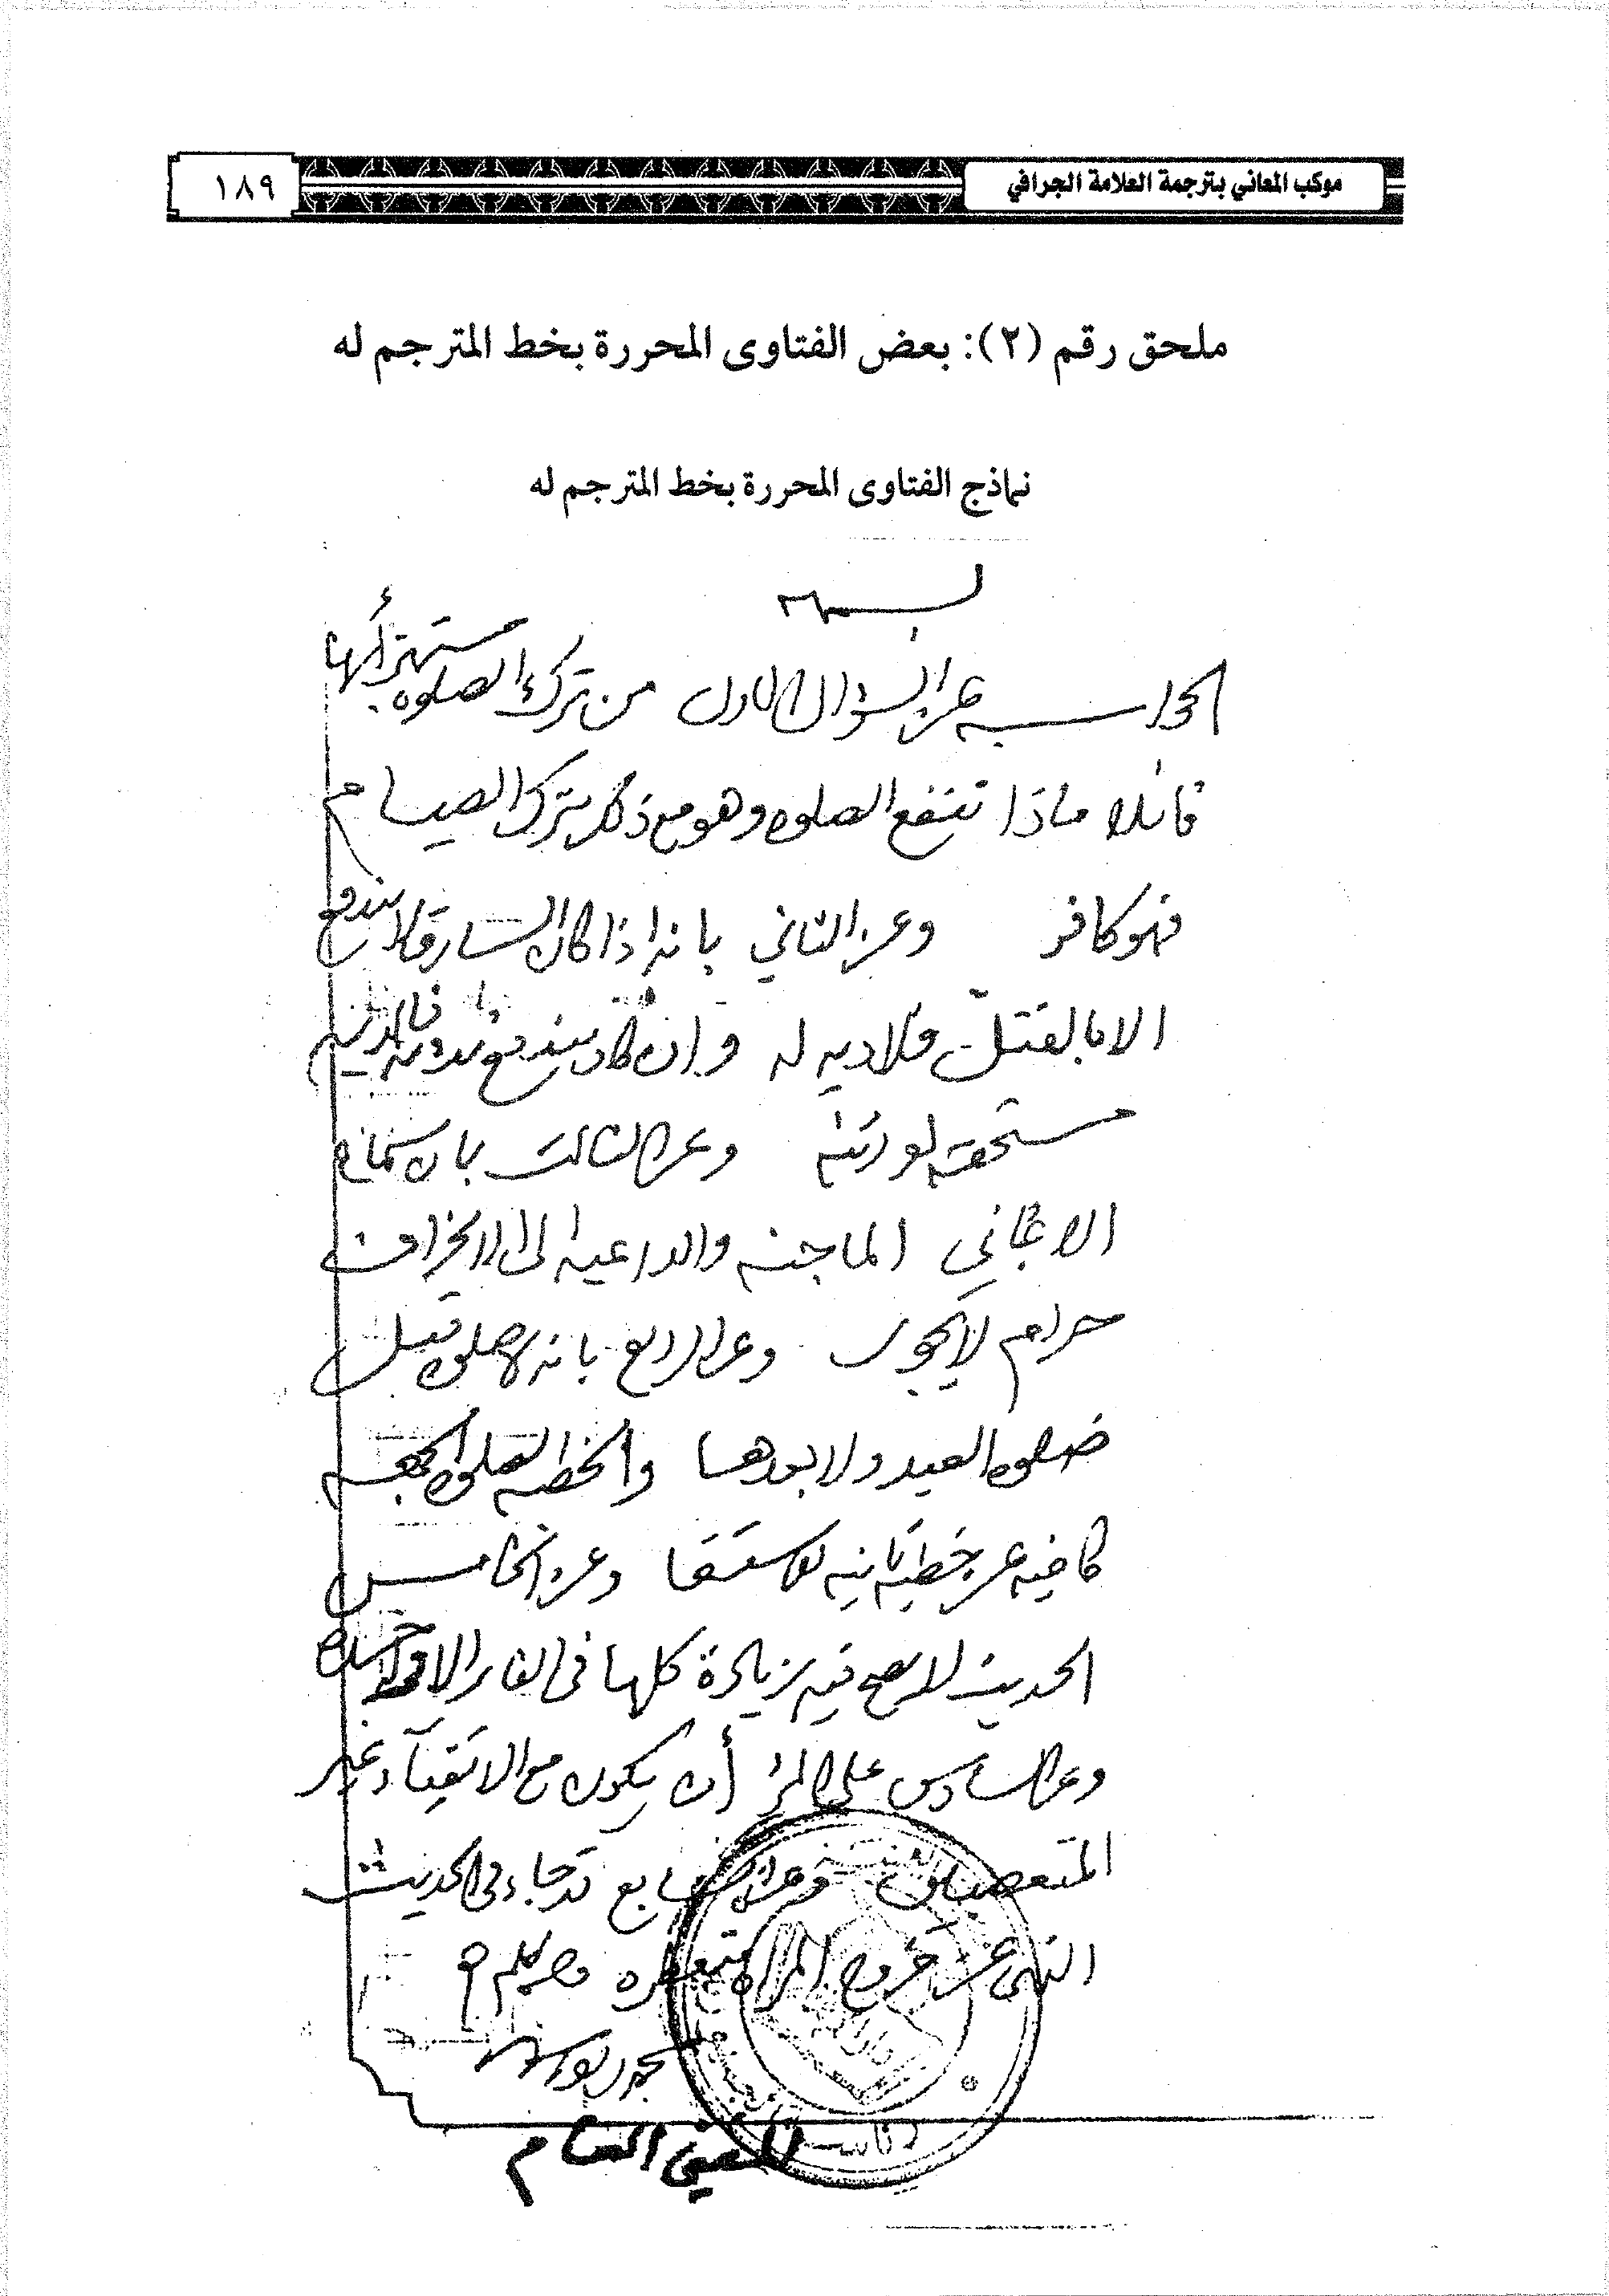 موكب المعاني بترجمة العلامة الجرافي
١٨٩
ملحق رقم (٢): بعض الفتاوى المحررة بخط المترجم له
نماذج الفتاوى المحررة بخط المترجم له
بسم
الجواب عن السؤال الاول من ترك الصلوه مستهزأ بها
قائلا ماذا تنفع الصلوه وهو مع ذلك يترك الصيام
فهو كافر وعن الثاني بانه اذا كان السارق لا يندفع
الا بالقتل فلا ديه له وان كان يندفع بدونه فالديه
مستحقه لورثته وعن الثالث بان سماع
الاغاني الماجنه والداعيه الى الانحراف
حرام لا يجوز وعن الرابع بانه لا صلوه قبل
صلوه العيد ولا بعدها والخطبه لصلوه الجمعه
كافيه عن خطبه ثانيه للاستسقا وعن الخامس
الحديث لا يصح فيه زيادة كلها في النار الا
وعن السادس على المرء أن يكون مع الاتقياء غير
المتعصبين وعن السابع قد جاء في الحديث
النهي عن خروج المرأه متعطره
المفتي العام